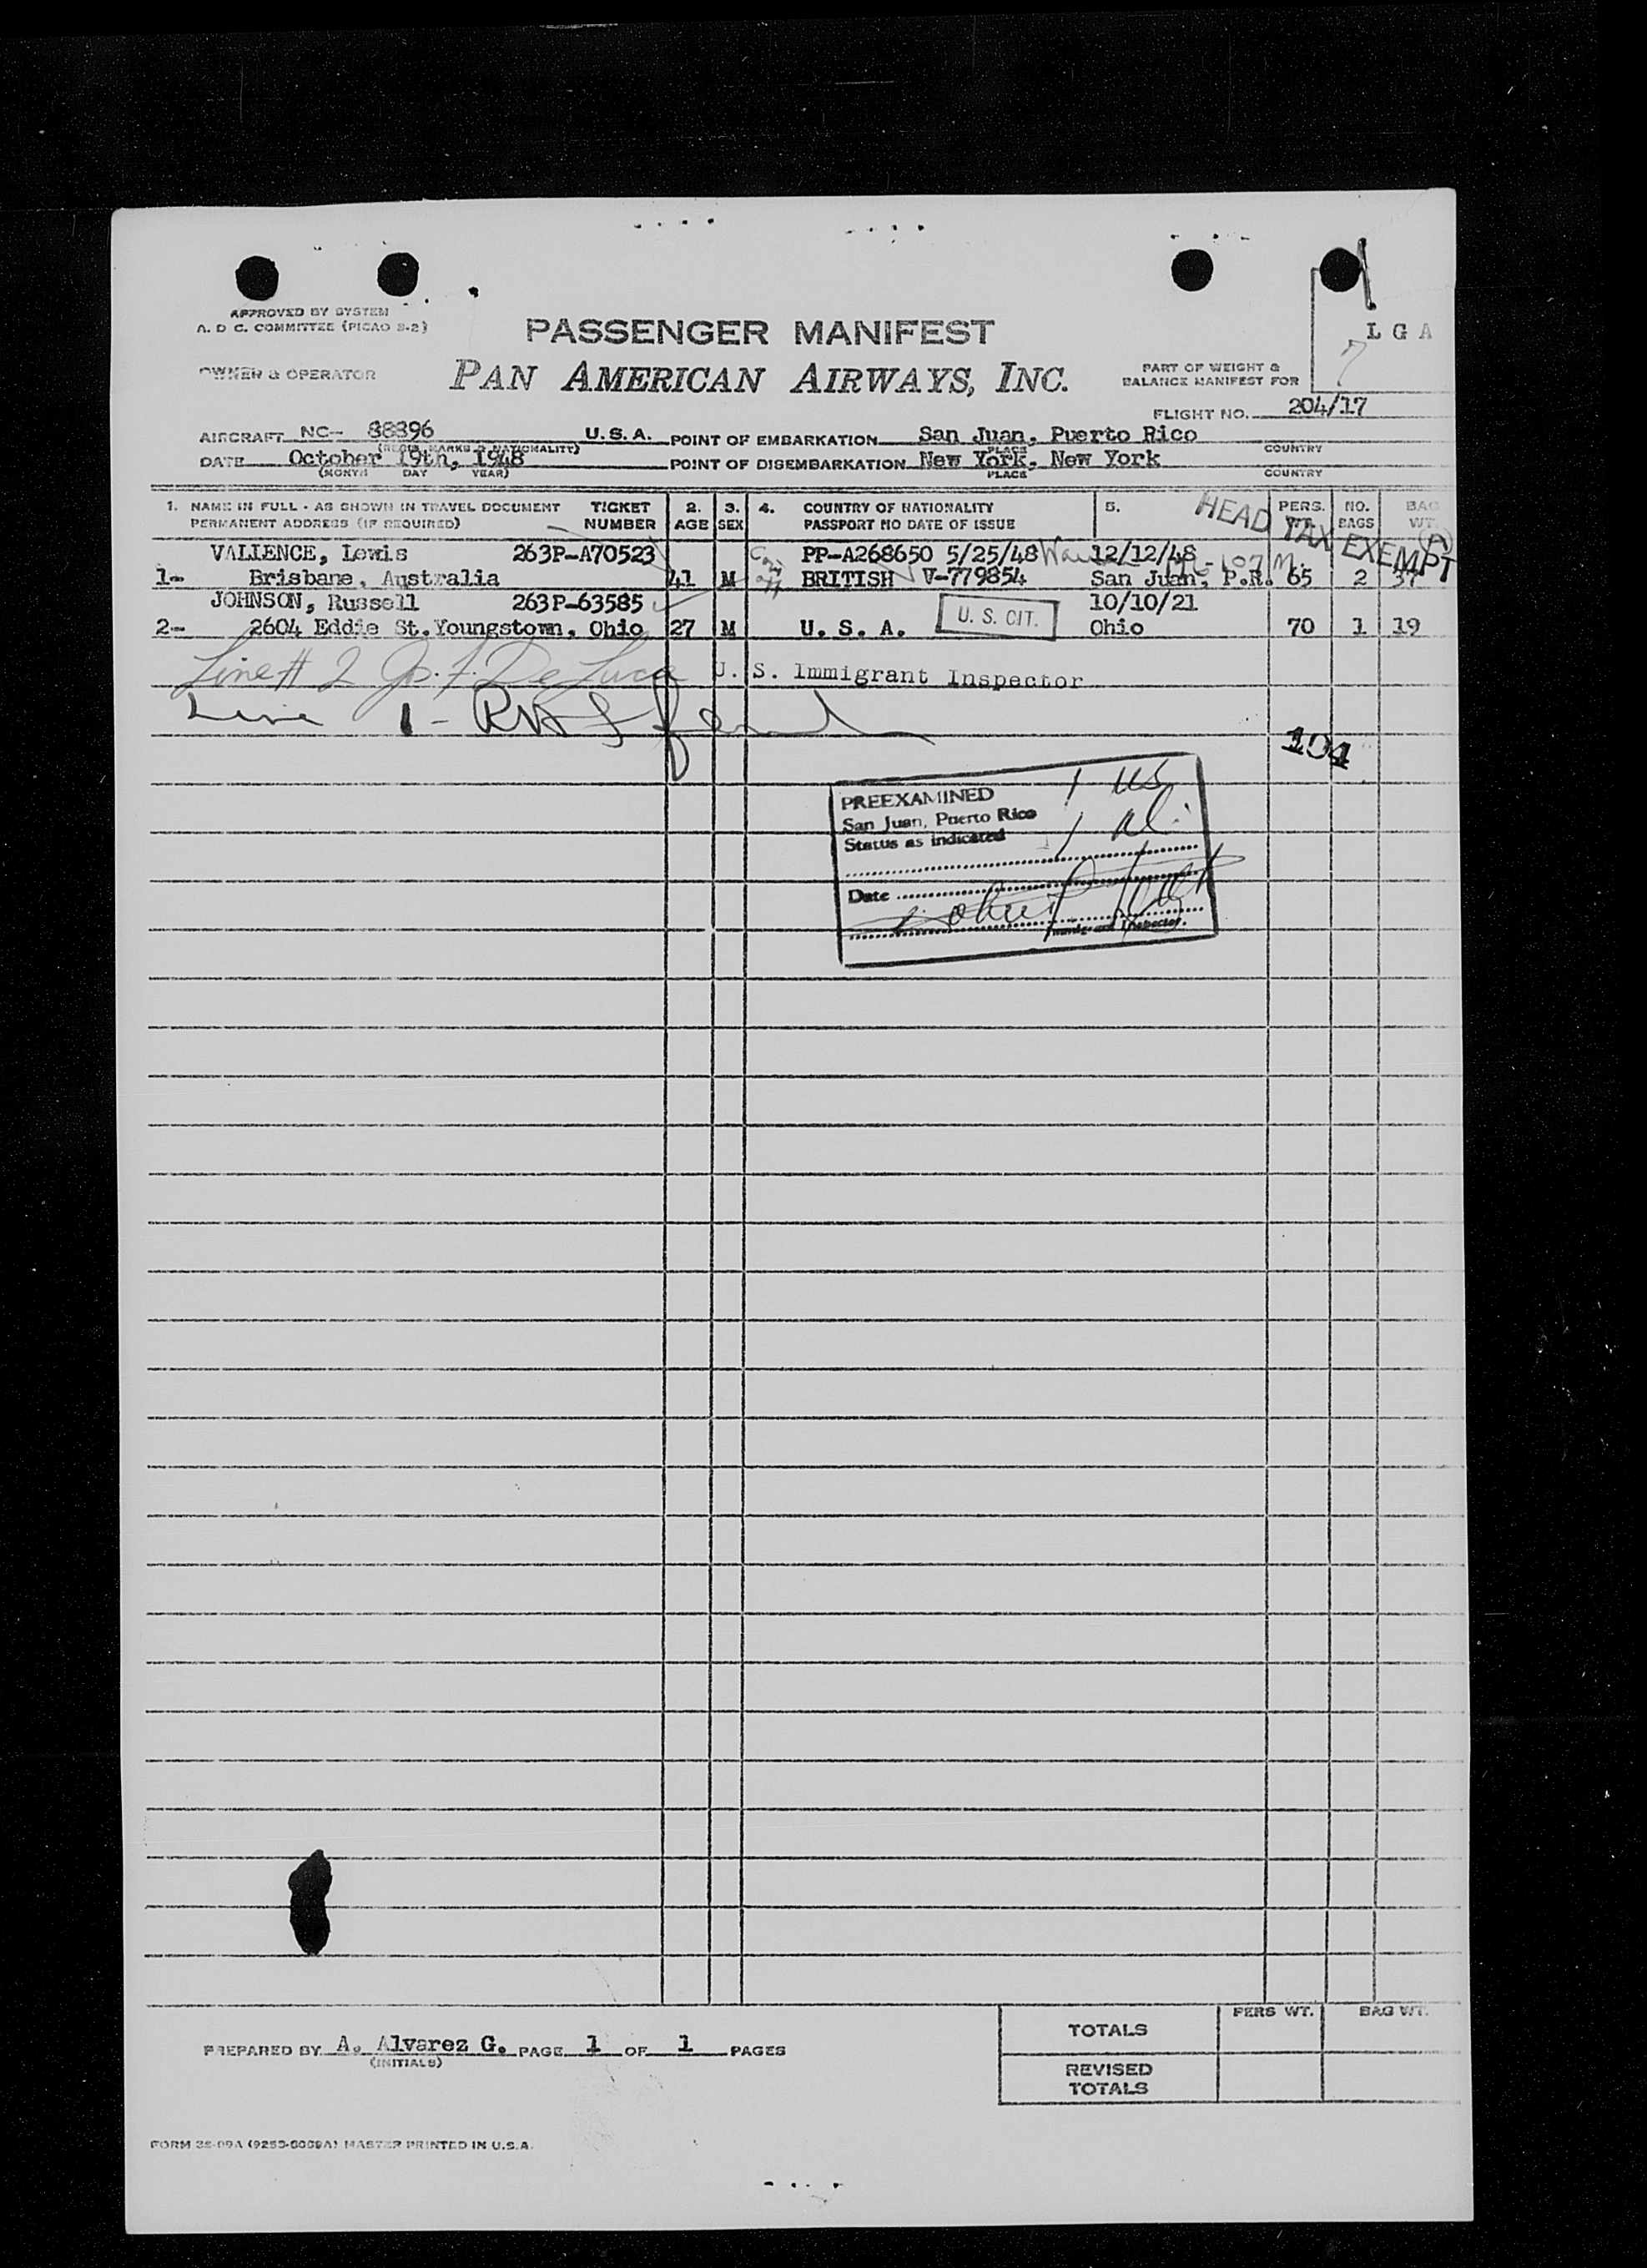 APPROVED BY SYSTEM
A. D C. COMMITTEE (PICAO S-2)
PASSENGER MANIFEST
L G A
7
OWNER & OPERATOR
PAN AMERICAN AIRWAYS, INC.
PART OF WEIGHT &
BALANCE MANIFEST FOR
FLIGHT NO. 204/17
AIRCRAFT NC- 88396 U.S.A. POINT OF EMBARKATION San Juan, Puerto Rico
(REGIS. MARKS & NATIONALITY) PLACE COUNTRY
DATE October 19th, 1948 POINT OF DISEMBARKATION New York, New York
(MONTH DAY YEAR) PLACE COUNTRY
1. NAME IN FULL - AS SHOWN IN TRAVEL DOCUMENT TICKET 2. 3. 4. COUNTRY OF NATIONALITY 5. PERS. NO. BAG
PERMANENT ADDRESS (IF REQUIRED) NUMBER AGE SEX PASSPORT NO DATE OF ISSUE WT. BAGS WT.
HEAD TAX EXEMPT
VALIENCE, Lewis 263P-A70523 PP-A268650 5/25/48 12/12/48
1- Brisbane, Australia 41 M BRITISH V-779854 San Juan, P.R. 65 2 37
JOHNSON, Russell 263P-63585 10/10/21
2- 2604 Eddie St. Youngstown, Ohio 27 M U. S. A. U. S. CIT. Ohio 70 1 19
Line # 2 Jo. F. De Luca U. S. Immigrant Inspector
Line 1 -
104
PREEXAMINED 1 US
San Juan, Puerto Rico
Status as indicated 1 Al.
Date
Immigrant Inspector.
PERS WT. BAG WT.
TOTALS
PREPARED BY A. Alvarez G. PAGE 1 OF 1 PAGES
(INITIALS)
REVISED
TOTALS
FORM MASTER PRINTED IN U.S.A.